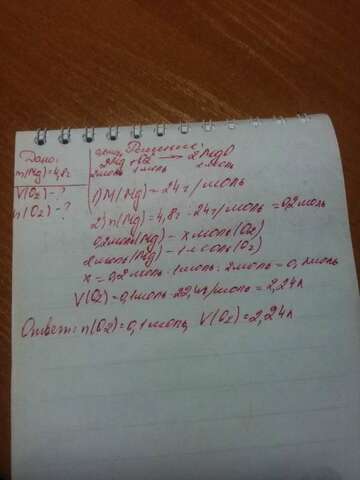 Дано:
m(Mg)=4,8г
V(O2)-?
n(O2)-?
Решение:
2Mg + O2 → 2MgO
2моль 1моль
1) M(Mg)=24 г/моль
2) n(Mg)=4,8г : 24г/моль = 0,2моль
0,2моль(Mg) – x моль(O2)
2моль(Mg) – 1моль(O2)
x = 0,2моль · 1моль : 2моль = 0,1моль
V(O2)=0,1моль · 22,4л/моль = 2,24л
Ответ: n(O2)=0,1моль, V(O2)=2,24л